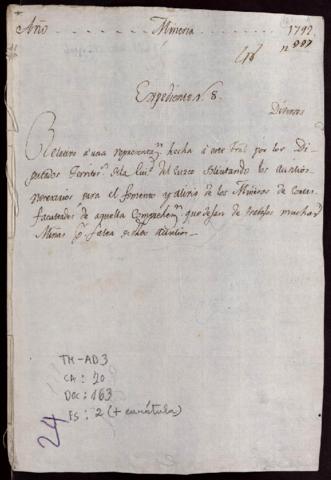 Año Mineria 1792
nº
Expediente n. 8.
Diversos
Relativo á una representn. hecha á este Tral por los Di
putados Territs. dela Ciud. del Cuzco solicitando los auxilios
necesarios para el fomento y alivio de los Mineros de cortas
facultades de aquella Comprehen. que dejan de trabajar muchas
Minas p. falta de dhos auxilios
TM-AD3
CA: 20
DOC: 163
FS: 2 (+ carátula)
24